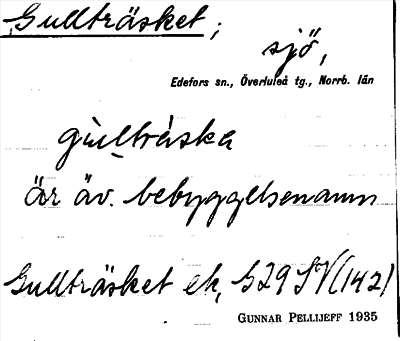 Gullträsket;
sjö,
Edefors sn., Överluleå tg., Norrb. län
gùl̮tràska
är äv. bebyggelsenamn
Gullträsket ek, G29 SV(142)
GUNNAR PELLIJEFF 1935